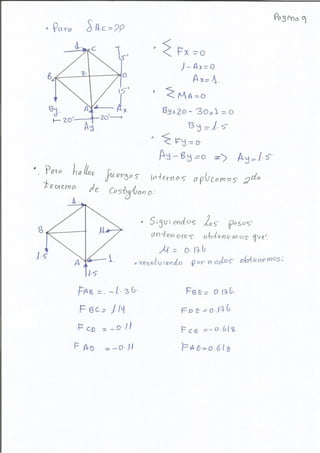 Pagina 9
• Para δAc = ??
1
C
15'
B
E
D
15'
A
Ax
By
Ay
20'
20'
• ΣFx=0
1-Ax=0
Ax=1.
• ΣMA=0
By*20 - 30*1=0
By=1.5
• ΣFy=0
Ay-By=0 => Ay=1.5
• Para hallar fuerzas internas aplicamos 2do
teorema de Castigliano:
1
B
M
1.5
A
1
1.5
• Siguiendos los pasos
anteriores obtenemos que:
M = 0.176
• resolviendo por nodos obtenemos:
FAB = -1.36
FBE = 0.176.
FBC= 1.14
FDE=0.176
FCD = -0.11
FCE =-0.618
FAD = -0.11
FAE=0.618